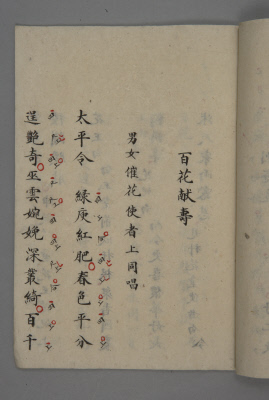 百花献壽
男女催花使者上同唱
太平令 緑庚紅肥春色平分
逞艷奇巫雲婉娩深叢綺百千